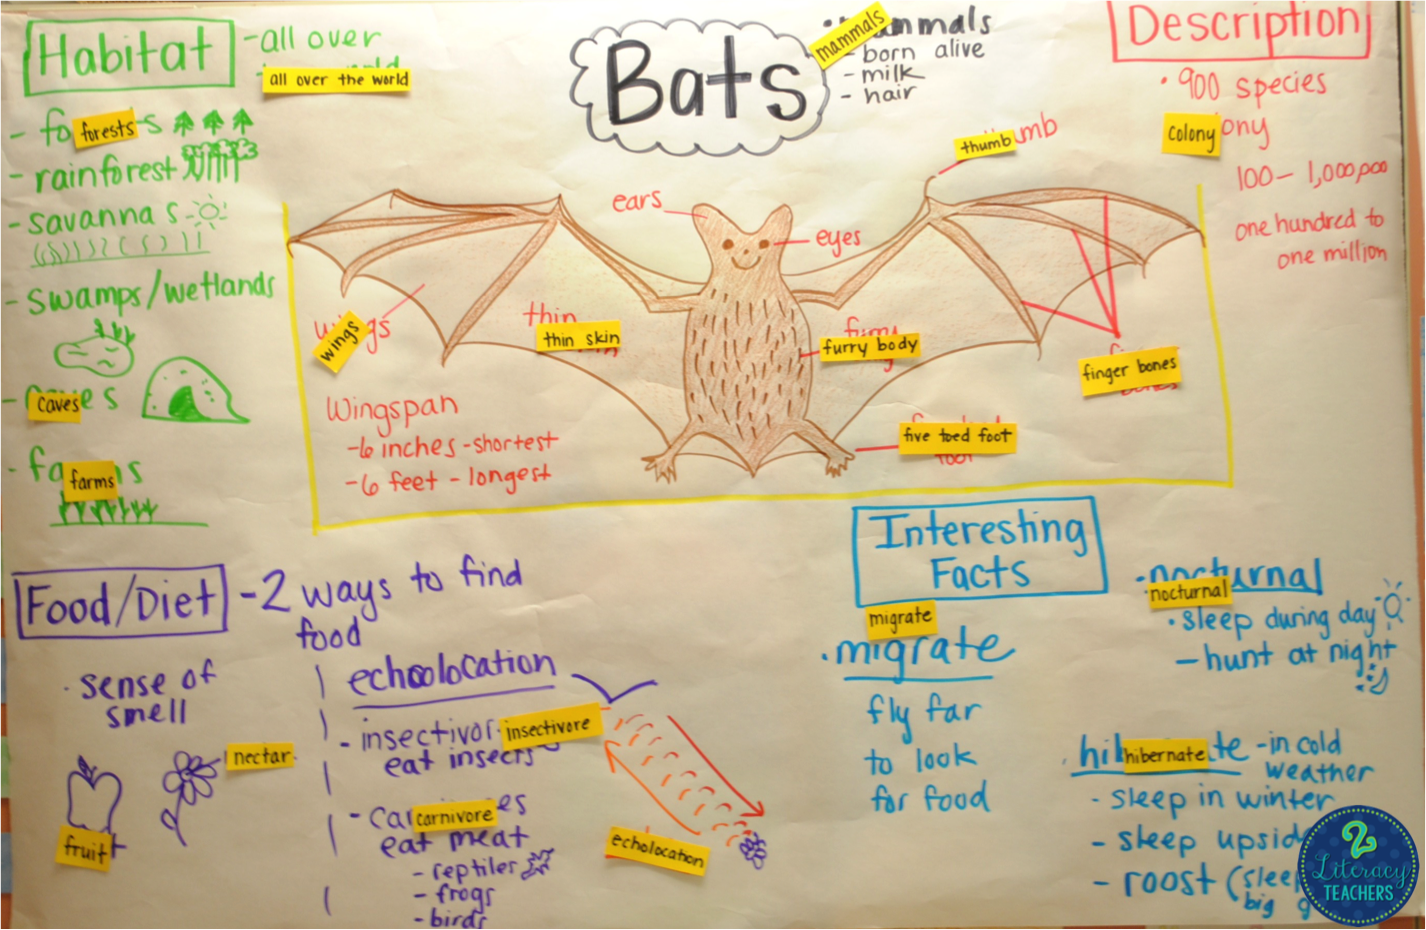 Bats
mammals
mmals
- born alive
- milk
- hair
Habitat
- all over
all over the world
forests
- rainforest
- savannas
- swamps/wetlands
caves
farms
Description
• 900 species
colony
100 - 1,000,000
one hundred to
one million
thumb
ears
eyes
wings
thin
thin skin
furry body
finger bones
five toed foot
Wingspan
- 6 inches - shortest
- 6 feet - longest
Food/Diet
- 2 ways to find
food
• sense of
smell
nectar
fruit
echoolocation
- insectivor
insectivore
eat insects
carnivore
eat meat
- reptiles
- frogs
- birds
echolocation
Interesting
Facts
migrate
• migrate
fly far
to look
for food
• nocturnal
nocturnal
• sleep during day
- hunt at night
hibernate
- in cold
weather
- sleep in winter
- sleep upsid
- roost (sleep
big g
2
Literacy
TEACHERS